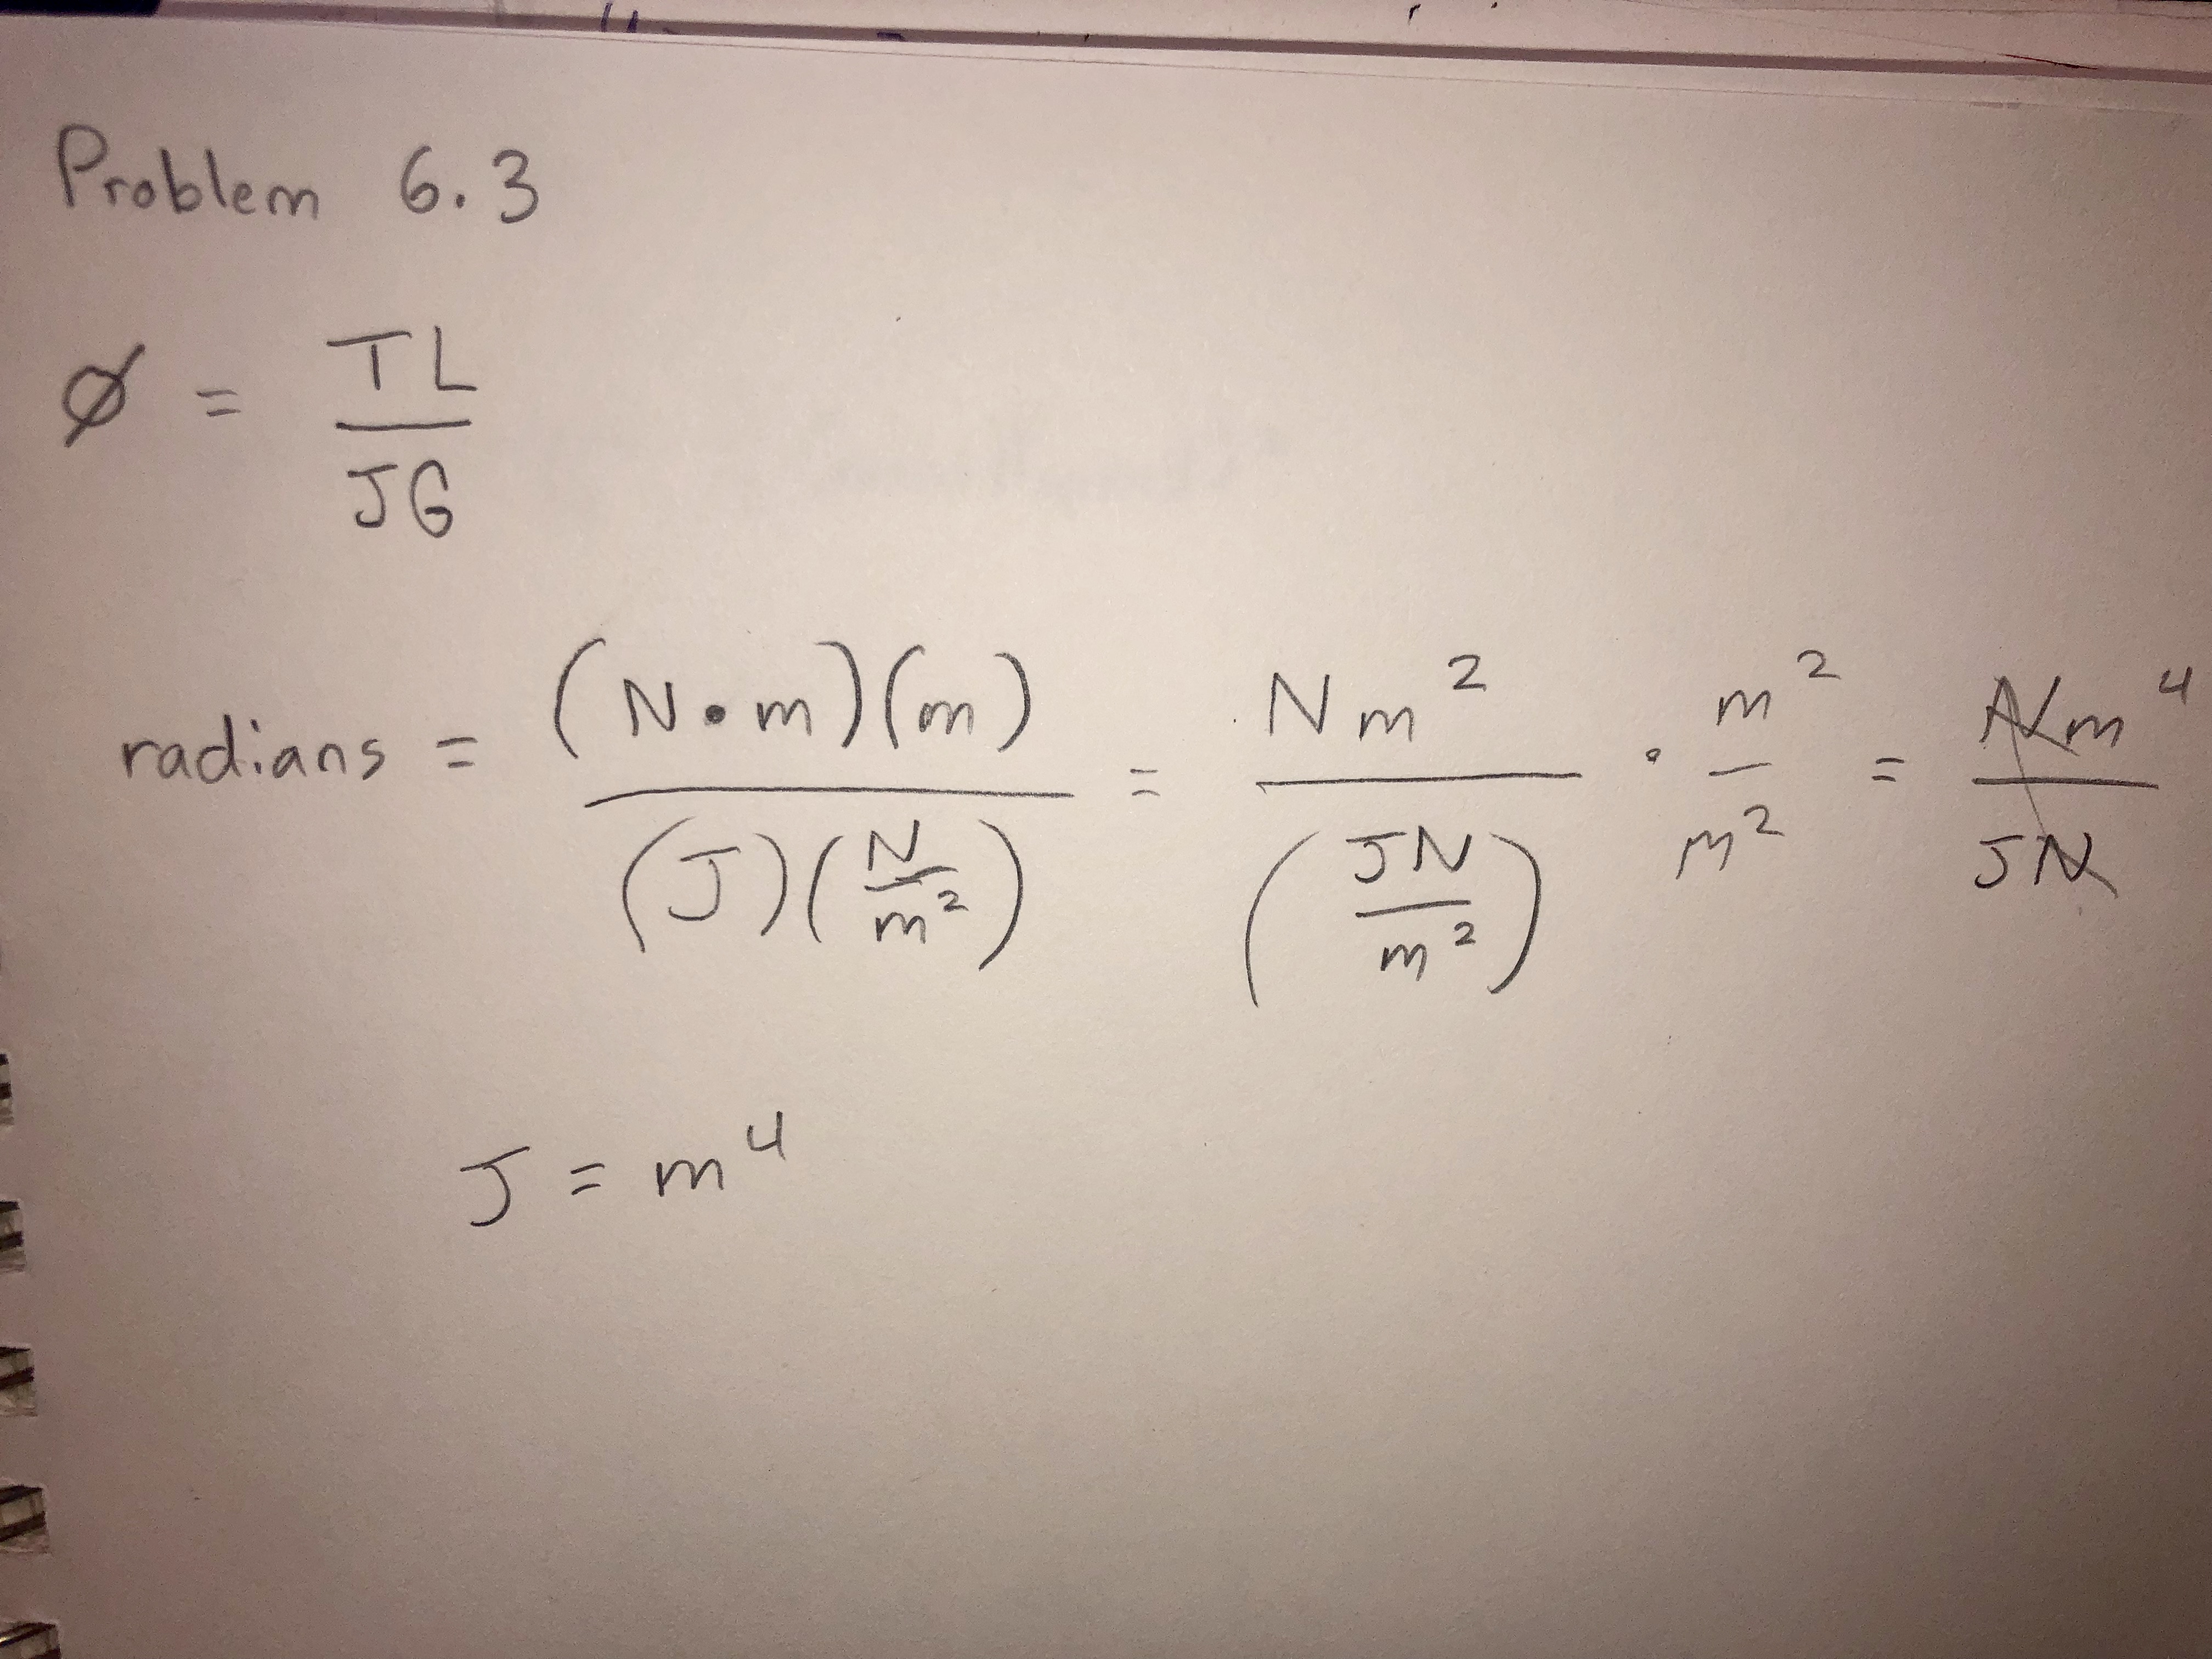 Problem 6.3
Ø = TL / JG
radians = (N•m)(m) / (J)(N/m²) = Nm² / (JN/m²) · m²/m² = Nm⁴ / JN
J = m⁴